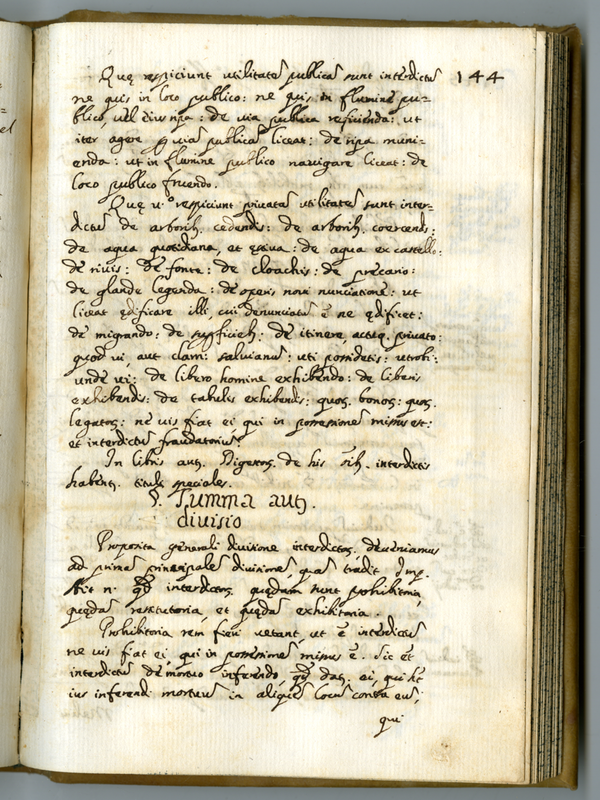 Quę respiciunt utilitatē publicā sunt interdictū 144
ne quis in loco publico: ne quis in flumine pu=
blico, vel eius ripa: de via publica reficienda: ut
iter agere p viā publicā liceat: de ripa muni=
enda: ut in flumine publico navigare liceat: de
loco publico fruendo.
Quę v.º respiciunt privatā utilitatē sunt inter=
dictū de arborib. cedendis: de arborib. coercend.:
de aqua quotidiana, et estiva: de aqua ex castello:
de rivis: de fonte: de cloachis: de precario:
de glande legenda: de operis novi nunciatione: ut
liceat ędificare illi, cui denunciatū ē ne ędificet:
de migrando: de superficieb.: de itinere, actuq. privato:
quod vi, aut clam: salvianū: uti possidetis: utrobi:
unde vi: de libero homine exhibendo: de liberis
exhibendis: de tabulis exhibendis: quoq. bonoq: quoq.
legatoq: ne vis fiat ei qui in possessionē missus est:
et interdictū fraudatoriū.
In libris aut. Digestoq. de his oib. interdictis
habent. tituli speciales.
§. Summa aut.
divisio
Proposita generali divisione interdictoq. deveniamus
ad primā principalē divisionē, quā tradit Imp.
Ait n. qđ interdictoq. quędam sunt prohibitoria,
quędā restitutoria, et quędā exhibitoria.
Prohibitoria rem fieri vetant, ut ē interdictū
ne vis fiat ei qui in possessionē missus ē. Sic et
interdictū de mortuo inferendo, qđ dat. ei, qui hēt
ius inferendi mortuū in aliquē locū contra eū,
qui